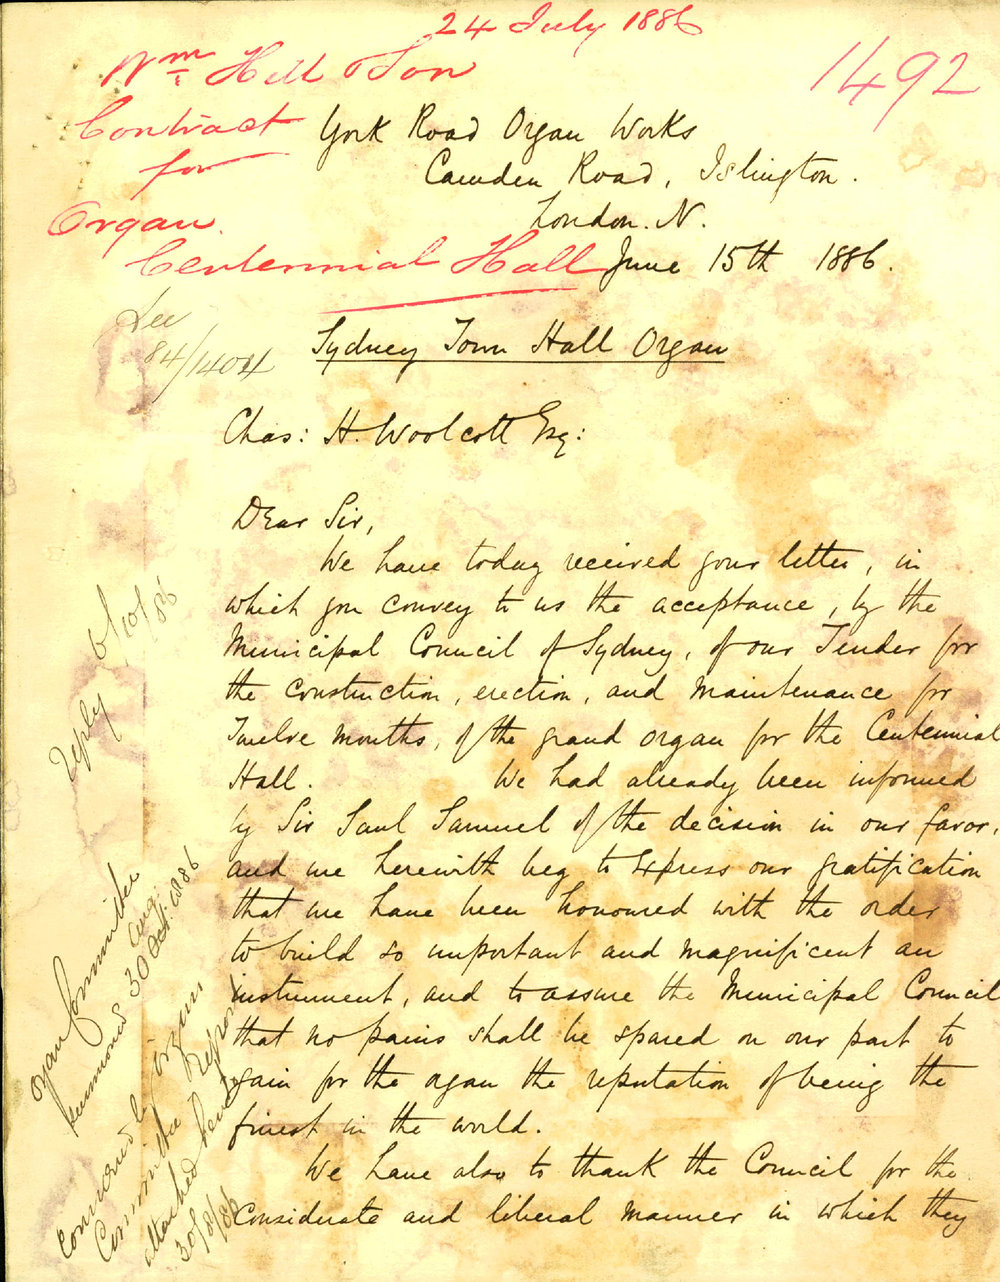 24 July 1886
1492
Wm Hill & Son
Contract
for
Organ.
Centennial Hall
See
84/1404
York Road Organ Works
Camden Road, Islington.
London. N.
June 15th 1886.
Sydney Town Hall Organ
Chas: H. Woolcott Esq:
Dear Sir,
We have today received your letter, in
which you convey to us the acceptance, by the
Municipal Council of Sydney, of our Tender for
the construction, erection, and maintenance for
Twelve months, of the grand organ for the Centennial
Hall. We had already been informed
by Sir Saul Samuel of the decision in our favor,
and we herewith beg to express our gratification
that we have been honoured with the order
to build so important and magnificent an
instrument, and to assure the Municipal Council
that no pains shall be spared on our part to
gain for the organ the reputation of being the
finest in the world.
We have also to thank the Council for the
considerate and liberal manner in which they
Reply 6/10/86
Organ Committee
summoned 30 Octr 1886
Considered by organ
Committee Report
attached hereto
30/8/86